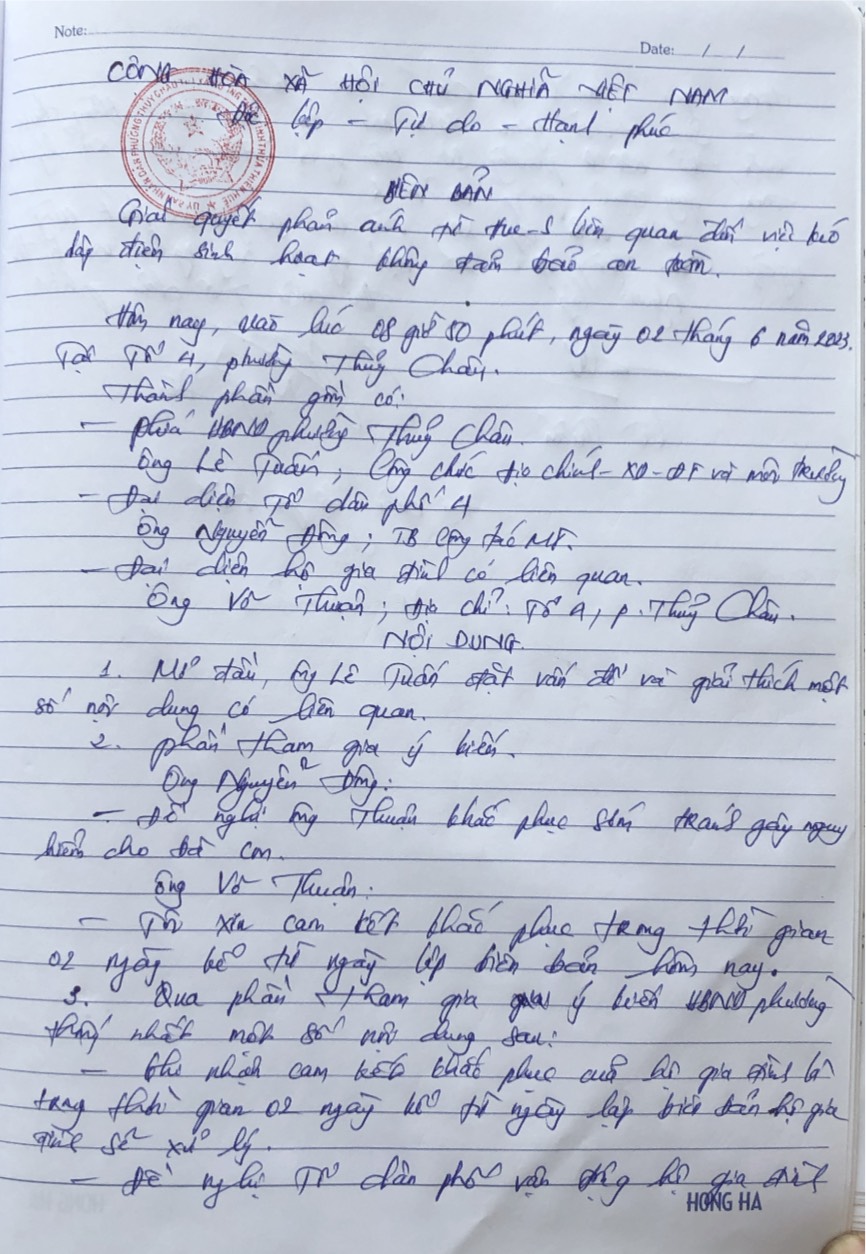 Note:
Date: / /
CỘNG HÒA XÃ HỘI CHỦ NGHĨA VIỆT NAM
Độc lập - Tự do - Hạnh phúc
BIÊN BẢN
Giải quyết phản ánh từ Hue-S liên quan đến việc
điện sinh hoạt không đảm bảo an toàn.
Hôm nay, vào lúc 08 giờ 50 phút, ngày 02 tháng 6 năm 2023.
Tại Tổ 4, phường Thủy Châu.
Thành phần gồm có:
- phía UBND phường Thủy Châu.
Ông Lê Tuấn; Công chức địa chính - XD - ĐT và môi trường
- Đại diện Tổ dân phố 4
Ông Nguyễn Đông; TB Công tác MT.
- Đại diện hộ gia đình có liên quan.
Ông Võ Thuận; địa chỉ: Tổ 4, p. Thủy Châu.
NỘI DUNG
1. Mở đầu, ông Lê Tuấn đặt vấn đề và giải thích một
số nội dung có liên quan.
2. phần tham gia ý kiến.
Ông Nguyễn Đông:
- Đề nghị ông Thuận khắc phục sớm tránh gây nguy
hiểm cho bà con.
Ông Võ Thuận:
- Tôi xin cam kết khắc phục trong thời gian
02 ngày kể từ ngày lập biên bản hôm nay.
3. Qua phần tham gia ý kiến UBND phường
thống nhất một số nội dung sau:
- Ghi nhận cam kết khắc phục của hộ gia đình là
trong thời gian 02 ngày kể từ ngày lập biên bản hộ gia
đình sẽ xử lý.
- Đề nghị Tổ dân phố vận động hộ gia đình
HONG HA